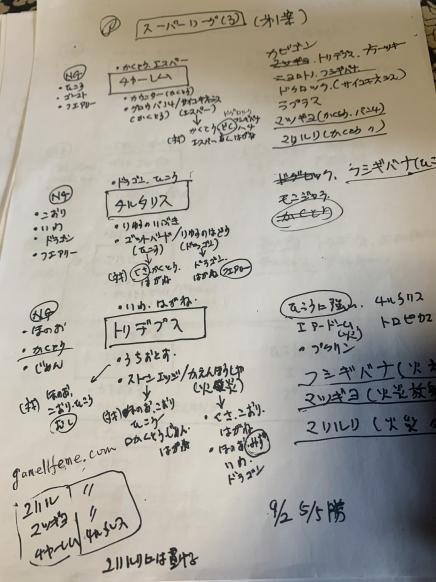 スーパーリーグ(3) (才1案)
・かくとう、エスパー
チャーレム
NG
・ひこう
・ゴースト
・フェアリー
・カウンター(かくとう)
・グロウパンチ/サイコキネシス
(かくとう) (エスパー)
カビゴン
マッギョ、トリデプス、ブラッキー
ニョロトノ、フシギバナ
ドクロッグ、(サイコキネシス)
ラプラス
マッギョ(かくとう、パンチ)
マリルリ(かくとう 〃)
・ドラゴン、ひこう
チルタリス
NG
・こおり
・いわ
・ドラゴン
・フェアリー
・りゅうのいぶき
・ゴッドバード/りゅうのはどう
(ひこう) (ドラゴン)
くさ、かくとう、
はがね
ドラゴン、
はがね フェアリー
フシギバナ(ひこ
モンジャラ
かくとう
・いわ、はがね
トリデプス
NG
・ほのお
・かくとう
・じめん
・うちおとす
・ストーンエッジ/かえんほうしゃ
ほのお、
こおり、ひこう
むし
・くさ、こおり、
はがね
・ほのお、みず
いわ、
ドラゴン
ひこうに強い、チルタリス
エアームド、トロピウス
・プクリン
フシギバナ(火炎
マッギョ(火炎放射
マリルリ(火炎
gamelifeme.com
マリルリ 〃
マッギョ 〃
チャーレム チルタリス
マリルリには負ける
9/2 5/5勝